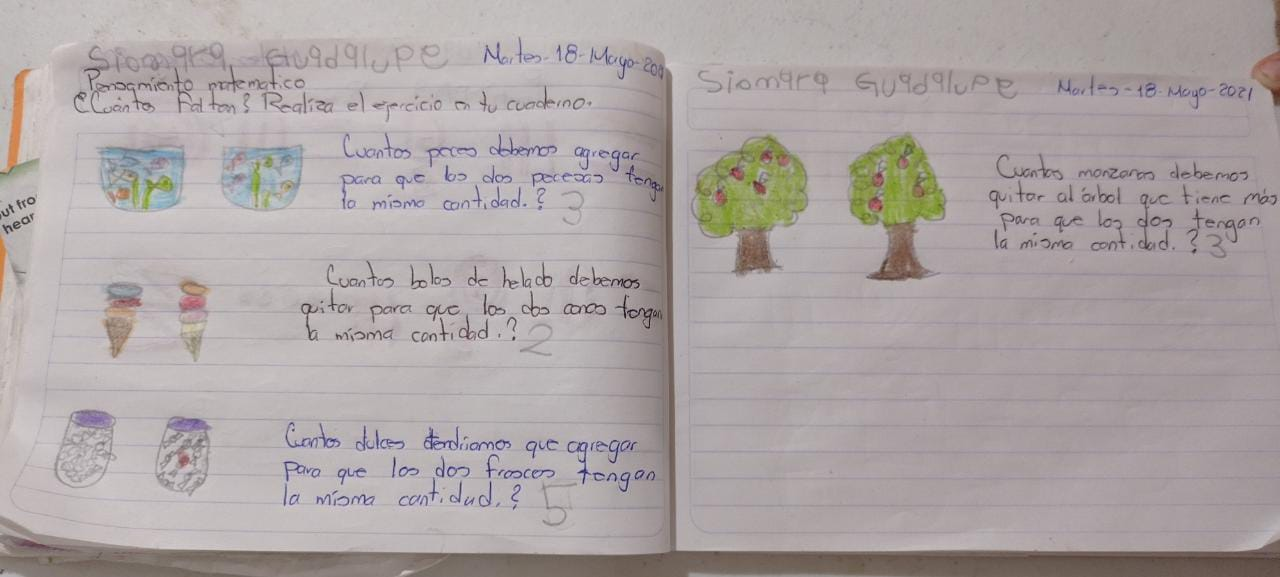 Siomara Guadalupe Martes-18-Mayo-20
Pensamiento matematico
¿Cuántos Faltan? Realiza el ejercicio en tu cuaderno.
Cuantos peces debemos agregar
para que los dos peceras tengan
la misma cantidad.? 3
Cuantos bolas de helado debemos
quitar para que los dos conos tengan
la misma cantidad.? 2
Cuantos dulces tendriamos que agregar
para que los dos frascos tengan
la misma cantidad.? 5
ut fro
hear
Siomara Guadalupe Martes-18-Mayo-2021
Cuantas manzanas debemos
quitar al árbol que tiene más
para que los dos tengan
la misma cantidad.? 3